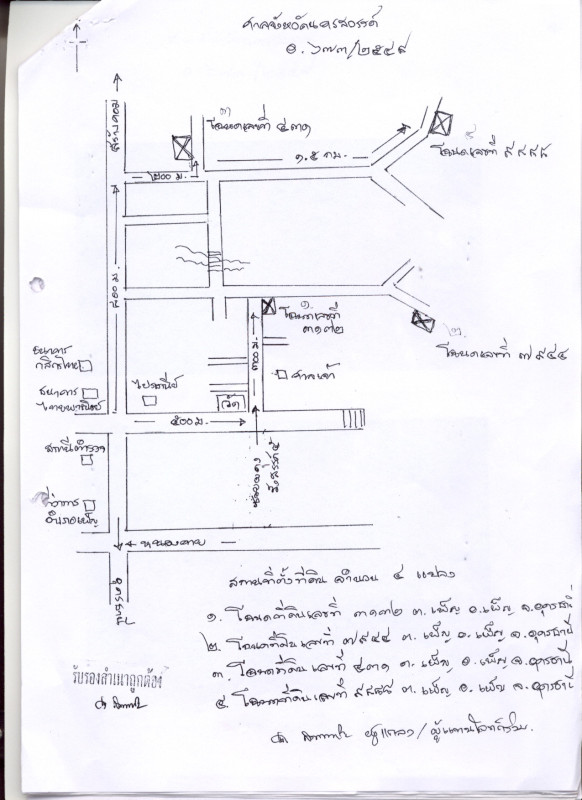 ศาลจังหวัดนครสวรรค์
๖๗๓/๒๕๔๙
๓
โฉนดเลขที่ ๔๓๑
๑.๕ กม.
๔
โฉนดเลขที่
สร้างคอม
๒๐๐ ม.
๔๐๐ ม.
๑.
โฉนดเลขที่
๓๑๓๒
๒.
โฉนดเลขที่ ๗๙๔๔
๓๐๐ ม.
ธนาคาร
กสิกรไทย
ธนาคาร
ไทยพาณิชย์
ไปรษณีย์
วัด
ศาลเจ้า
๕๐๐ ม.
สถานีตำรวจ
ที่ว่าการ
อำเภอเพ็ญ
หนองคาย
อุดรธานี
สถานที่ตั้งที่ดิน จำนวน ๔ แปลง
๑. โฉนดที่ดินเลขที่ ๓๑๓๒ ต. เพ็ญ อ. เพ็ญ จ. อุดรธานี
๒. โฉนดที่ดินเลขที่ ๗๙๔๔ ต. เพ็ญ อ. เพ็ญ จ. อุดรธานี
๓. โฉนดที่ดินเลขที่ ๔๓๑ ต. เพ็ญ อ. เพ็ญ จ. อุดรธานี
๔. โฉนดที่ดินเลขที่ ต. เพ็ญ อ. เพ็ญ จ. อุดรธานี
รับรองสำเนาถูกต้อง
ผู้แถลง/ผู้แทนโจทก์